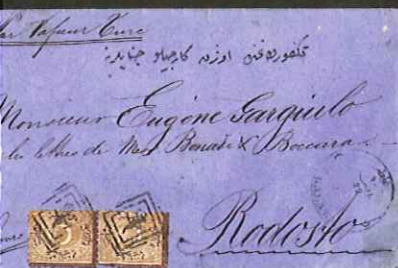 Par Vapeur Turc
تكفور طاغنده اوژن كارجيلو جنابلرينه
Monsieur Eugène Gargiulo
les lettres de Mess Bonadi & Boccara
Rodosto